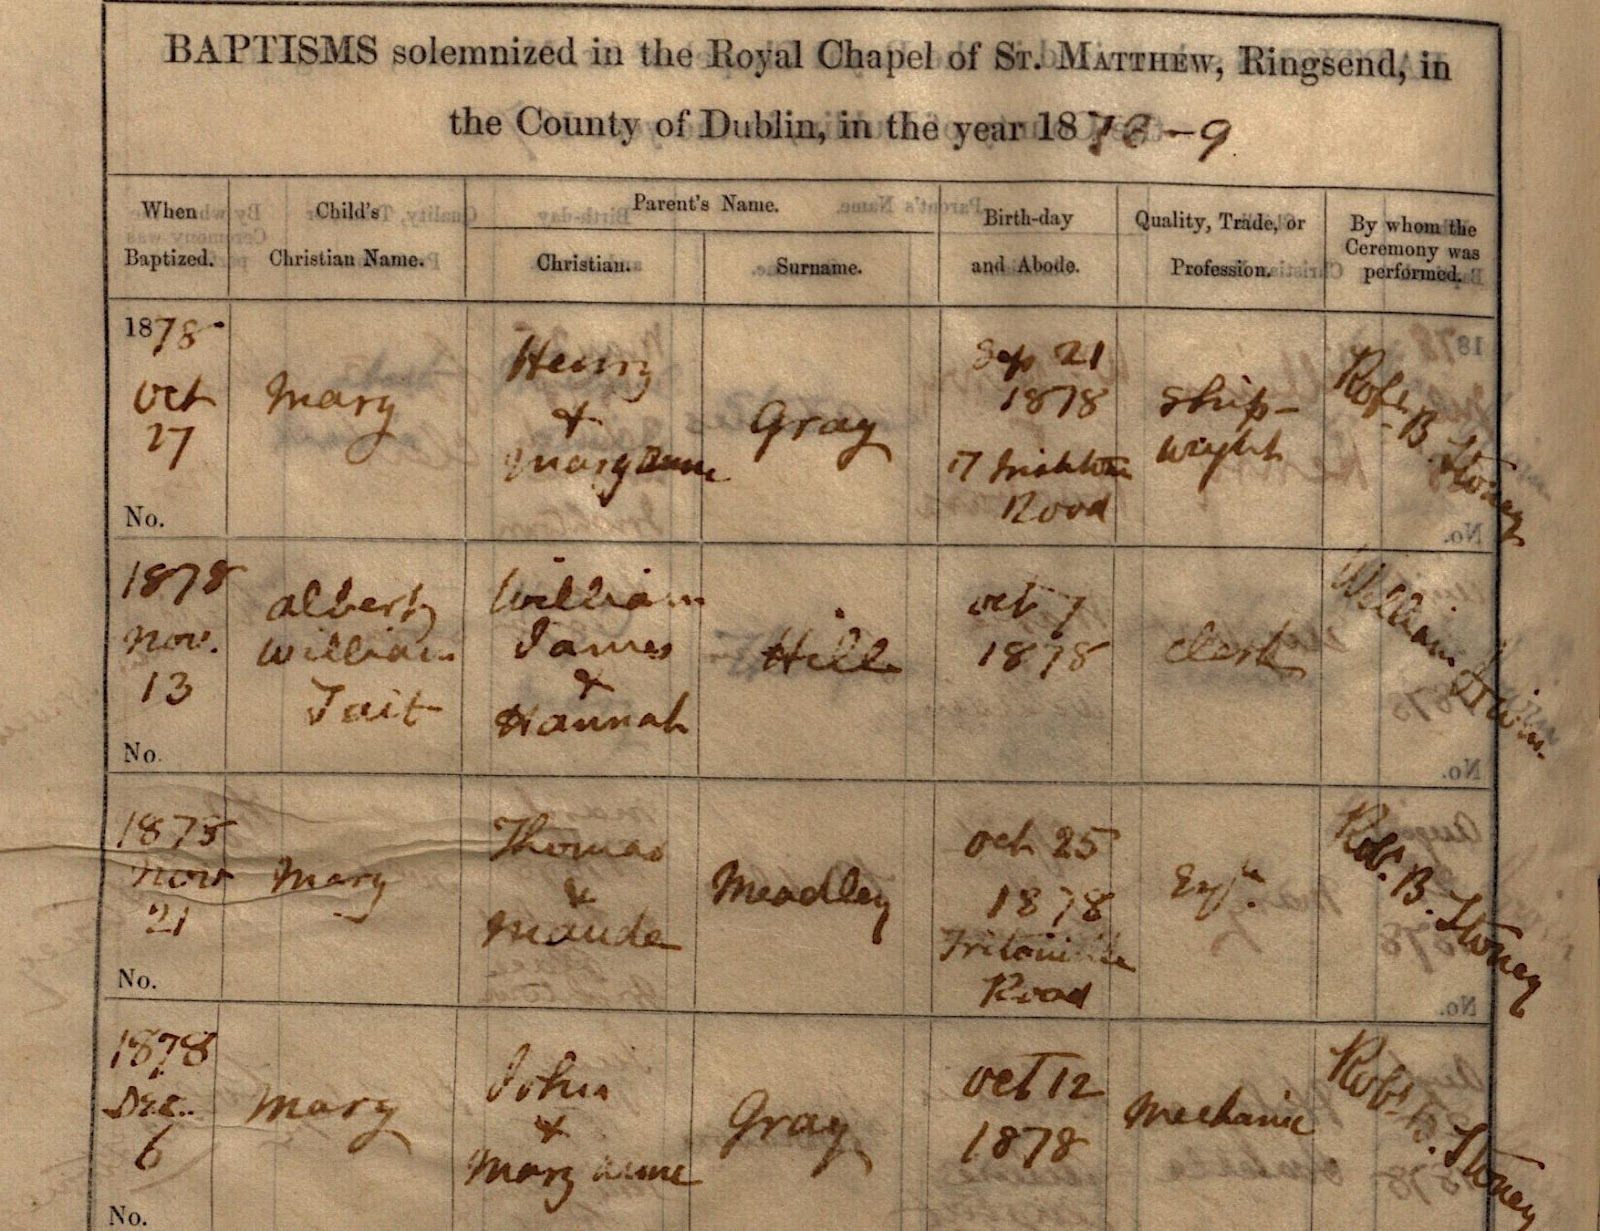 BAPTISMS solemnized in the Royal Chapel of ST. MATTHEW, Ringsend, in
the County of Dublin, in the year 1878-9
When
Baptized.
Child's
Christian Name.
Parent's Name.
Christian.
Surname.
Birth-day
and Abode.
Quality, Trade, or
Profession.
By whom the
Ceremony was
performed.
1878
Oct
27
No.
Mary
Henry
&
Mary Anne
Gray
Sep 21
1878
17 Irishtown
Road
Ship-
wright
Robt. B. Stoney
1878
Nov.
13
No.
Albert
William
Tait
William
James
&
Hannah
Hill
Oct 7
1878
Clerk
William
1878
Nov
21
No.
Mary
Thomas
&
Maude
Meadley
Oct 25
1878
Tritonville
Road
Esqr.
Robt. B. Stoney
1878
Dec.
6
No.
Mary
John
&
Mary Anne
Gray
Oct 12
1878
Mechanic
Robt. B. Stoney